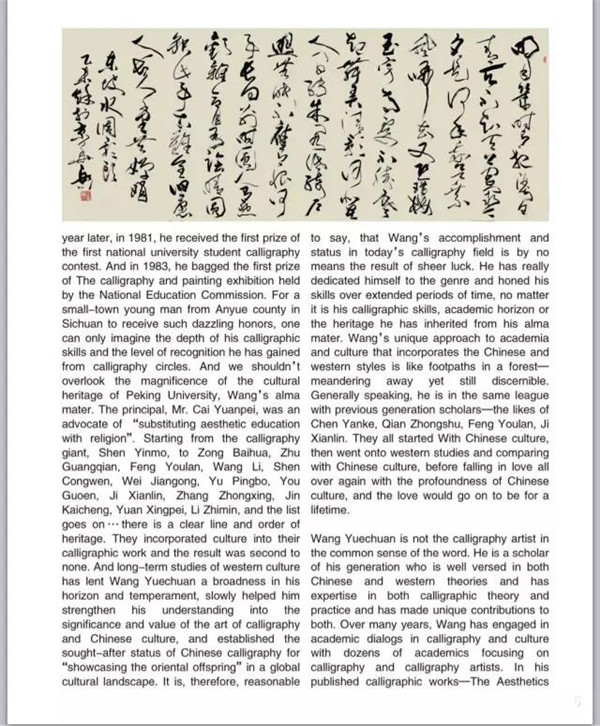 明月幾時有把酒問
青天不知天上宮闕今
夕是何年我欲乘
風歸去又恐瓊樓
玉宇高處不勝寒
起舞弄清影何似在
人間轉朱閣低綺戶
照無眠不應有恨何
事長向別時圓人有悲
歡離合月有陰晴圓
缺此事古難全但願
人長久千里共嬋娟
東坡水調歌頭
year later, in 1981, he received the first prize of
the first national university student calligraphy
contest. And in 1983, he bagged the first prize
of The calligraphy and painting exhibition held
by the National Education Commission. For a
small-town young man from Anyue county in
Sichuan to receive such dazzling honors, one
can only imagine the depth of his calligraphic
skills and the level of recognition he has gained
from calligraphy circles. And we shouldn't
overlook the magnificence of the cultural
heritage of Peking University, Wang's alma
mater. The principal, Mr. Cai Yuanpei, was an
advocate of “substituting aesthetic education
with religion”. Starting from the calligraphy
giant, Shen Yinmo, to Zong Baihua, Zhu
Guangqian, Feng Youlan, Wang Li, Shen
Congwen, Wei Jiangong, Yu Pingbo, You
Guoen, Ji Xianlin, Zhang Zhongxing, Jin
Kaicheng, Yuan Xingpei, Li Zhimin, and the list
goes on…there is a clear line and order of
heritage. They incorporated culture into their
calligraphic work and the result was second to
none. And long-term studies of western culture
has lent Wang Yuechuan a broadness in his
horizon and temperament, slowly helped him
strengthen his understanding into the
significance and value of the art of calligraphy
and Chinese culture, and established the
sought-after status of Chinese calligraphy for
“showcasing the oriental offspring” in a global
cultural landscape. It is, therefore, reasonable
to say, that Wang's accomplishment and
status in today's calligraphy field is by no
means the result of sheer luck. He has really
dedicated himself to the genre and honed his
skills over extended periods of time, no matter
it is his calligraphic skills, academic horizon or
the heritage he has inherited from his alma
mater. Wang's unique approach to academia
and culture that incorporates the Chinese and
western styles is like footpaths in a forest—
meandering away yet still discernible.
Generally speaking, he is in the same league
with previous generation scholars—the likes of
Chen Yanke, Qian Zhongshu, Feng Youlan, Ji
Xianlin. They all started With Chinese culture,
then went onto western studies and comparing
with Chinese culture, before falling in love all
over again with the profoundness of Chinese
culture, and the love would go on to be for a
lifetime.
Wang Yuechuan is not the calligraphy artist in
the common sense of the word. He is a scholar
of his generation who is well versed in both
Chinese and western theories and has
expertise in both calligraphic theory and
practice and has made unique contributions to
both. Over many years, Wang has engaged in
academic dialogs in calligraphy and culture
with dozens of academics focusing on
calligraphy and calligraphy artists. In his
published calligraphic works—The Aesthetics